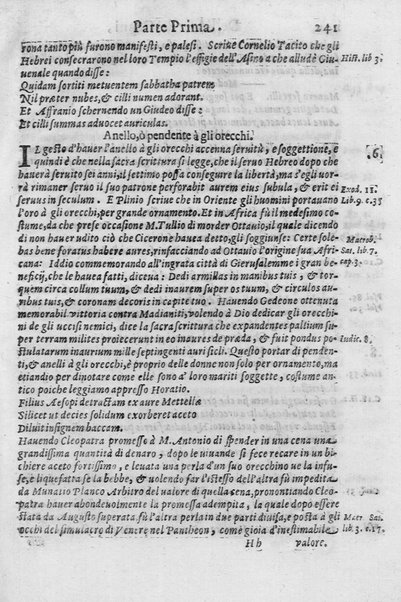 Parte Prima. 241
rona tanto più furono manifesti, e palesi. Scriue Cornelio Tacito che gli
Hebrei consecrarono nel loro Tempio l'effigie dell'Asino a che alludè Giu- Hist. lib 3.
uenale quando disse:
Quidam sortiti metuentem sabbatha patrem
Nil præter nubes, & cilli numen adorant.
Et Affranio schernendo un Giudeo disse:
Et cilli summas aduocet auriculas.
Anello, ò pendente à gli orecchi.
IL gesto d'hauer l'anello à gli orecchi accenna seruitù, e soggettione, e [6]
quindi è che nella sacra scrittura si legge, che il seruo Hebreo dopo che
hauerà seruito sei anni, il settimo possa conseguire la libertà, ma s'egli uor-
rà rimaner seruo il suo patrone perforabit aurem eius subula, & erit ei
seruus in seculum. E Plinio scriue che in Oriente gli huomini portauano Exod. 11.
l'oro à gli orecchi, per grande ornamento. Et in Africa fù il medesimo co- Lib. 9. c.35
stume, da che prese occasione M. Tullio di morder Ottauio, il quale dicendo
di non hauer udito ciò che Cicerone hauea detto, gli soggiunse: Certe sole- Macrob.
bas bene foratas habere aures, rinfacciando ad Ottauio l'origine sua Afri- Sat. lib. 7.
cana: Iddio commemorando all'ingrata città di Gierusalemme i gran be- cap. 3.
neficij, che le hauea fatti, diceua: Dedi armillas in manibus tuis, & tor-
quem circa collum tuum, & dedi inaurem super os tuum, & circulos au-
ribus tuis, & coronam decoris in capite tuo. Hauendo Gedeone ottenuta
memorabil vittoria contra Madianiti, volendo à Dio dedicar gli orecchi-
ni de gli uccisi nemici, dice la sacra scrittura che expandentes pallium su-
per terram milites proiecerunt in eo inaures de præda, & fuit pondus po Iudic. 8.
stulatarum inaurium mille septingenti auri sicli. Questo portar di penden-
ti, & anelli à gli orecchi, è proprio delle donne non solo per ornamento, ma
etiandio per dinotare come elle sono à loro mariti soggette, costume an-
tico poiche leggiamo appresso Horatio.
Filius Aesopi detractam ex aure Mettellæ
Silicet ut decies solidum exorberet aceto
Diluit insignem baccam.
Hauendo Cleopatra promesso à M. Antonio di spender in una cena una
grandissima quantità di denaro, dopo le uiuande si fece recare in un bi-
chiere aceto fortissimo, e leuata una perla d'un suo orecchino ue la infu-
se, e liquefatta se la bebbe, & volendo far l'istesso dell'altra fù impedita
da Munatio Planco Arbitro del valore di quella cena, prononciando Cleo-
patra hauer abondeuolmente la promessa adempita, la quale dopo essere
stata da Augusto superata fù l'altra perla in due parti diuisa, e posta à gli Macr. Sat.
occhi del simulacro di Venere nel Pantheon, come gioia d'inestimabile lib. 3. c.17.
Hh valore.